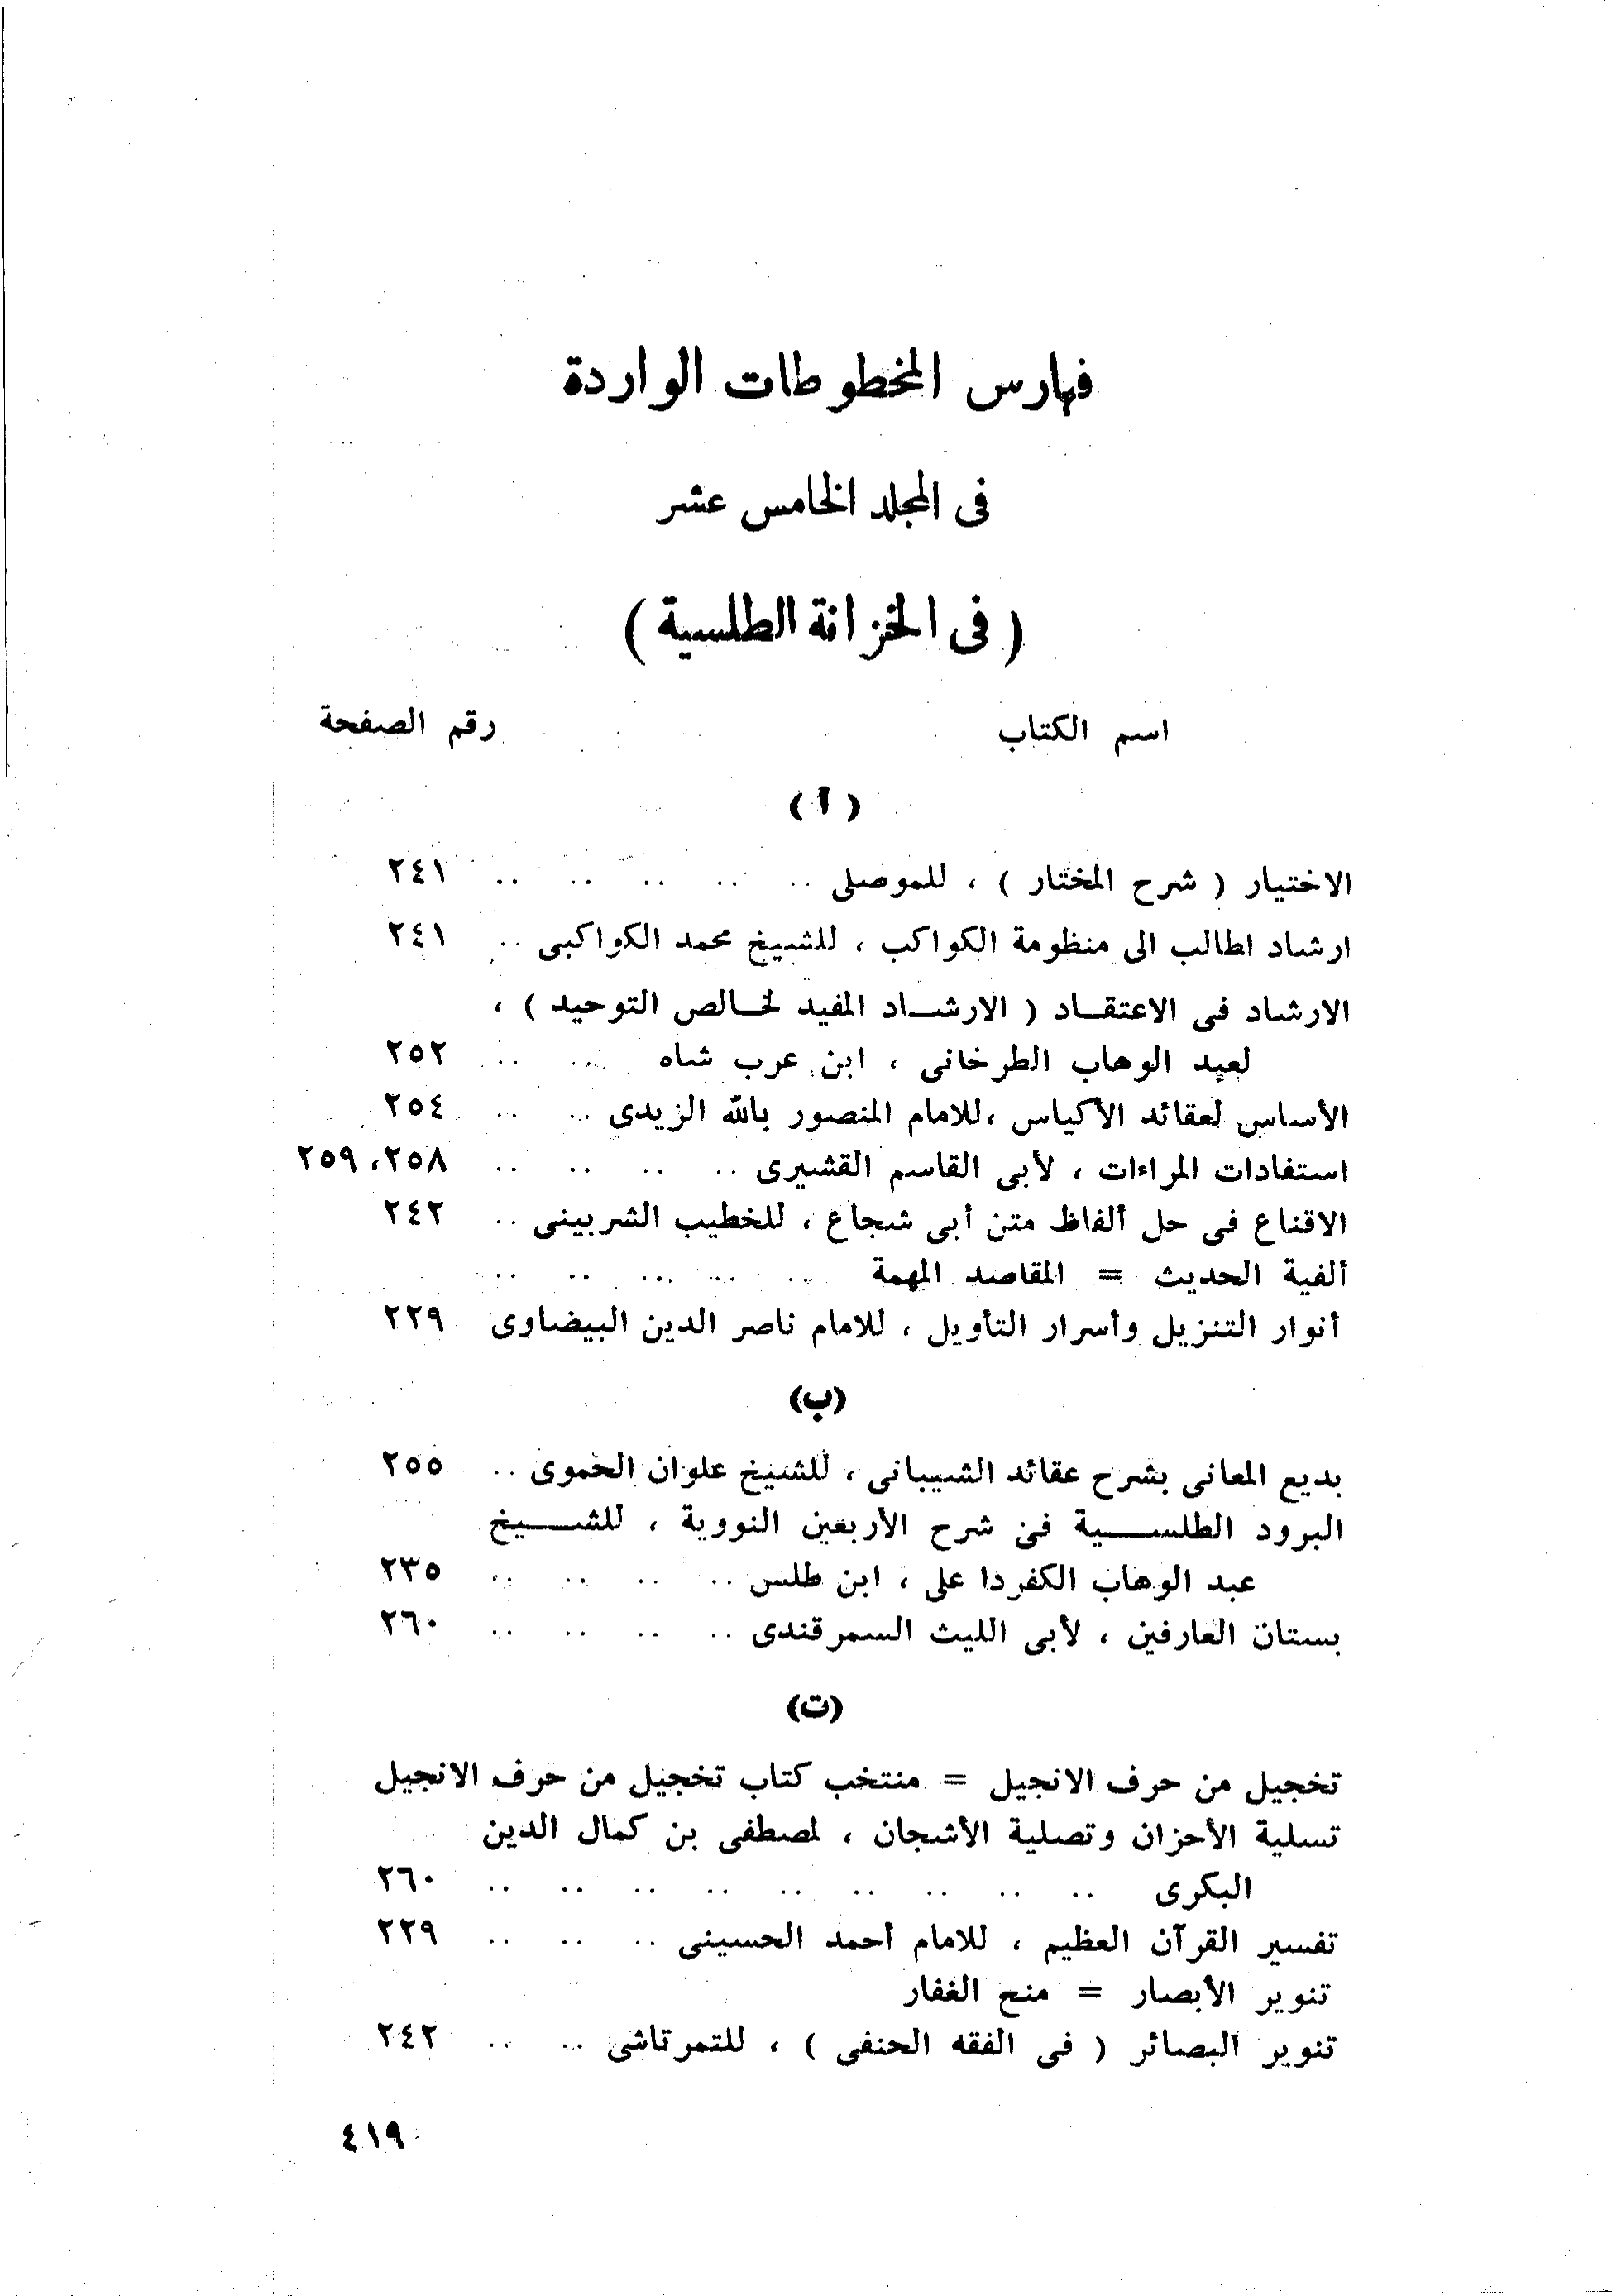 فهارس المخطوطات الواردة
فى المجلد الخامس عشر
( فى الخزانة الطلسية )
اسم الكتاب رقم الصفحة
( أ )
الاختيار ( شرح المختار ) ، للموصلى .. .. .. .. .. ٢٤١
ارشاد اطالب الى منظومة الكواكب ، للشيخ محمد الكواكبى .. ٢٤١
الارشاد فى الاعتقاد ( الارشاد المفيد لخالص التوحيد ) ،
لعبد الوهاب الطرخانى ، ابن عرب شاه .. .. ٢٥٢
الأساس لعقائد الأكياس ،للامام المنصور بالله الزيدى .. .. ٢٥٤
استفادات المراءات ، لأبى القاسم القشيرى .. .. .. .. ٢٥٨، ٢٥٩
الاقناع فى حل ألفاظ متن أبى شجاع ، للخطيب الشربينى .. ٢٤٢
ألفية الحديث = المقاصد المهمة .. .. .. .. ..
أنوار التنزيل وأسرار التأويل ، للامام ناصر الدين البيضاوى ٢٢٩
(ب)
بديع المعانى بشرح عقائد الشيبانى ، للشيخ علوان الحموى .. ٢٥٥
البرود الطلسية فى شرح الأربعين النووية ، للشيخ
عبد الوهاب الكفردا على ، ابن طلس .. .. .. .. ٢٣٥
بستان العارفين ، لأبى الليث السمرقندى .. .. .. .. ٢٦٠
(ت)
تخجيل من حرف الانجيل = منتخب كتاب تخجيل من حرف الانجيل
تسلية الأحزان وتصلية الأشجان ، لمصطفى بن كمال الدين
البكرى .. .. .. .. .. .. .. .. .. ٢٦٠
تفسير القرآن العظيم ، للامام أحمد الحسينى .. .. .. ٢٢٩
تنوير الأبصار = منح الغفار
تنوير البصائر ( فى الفقه الحنفى ) ، للتمرتاشى .. .. ٢٤٢
٤١٩